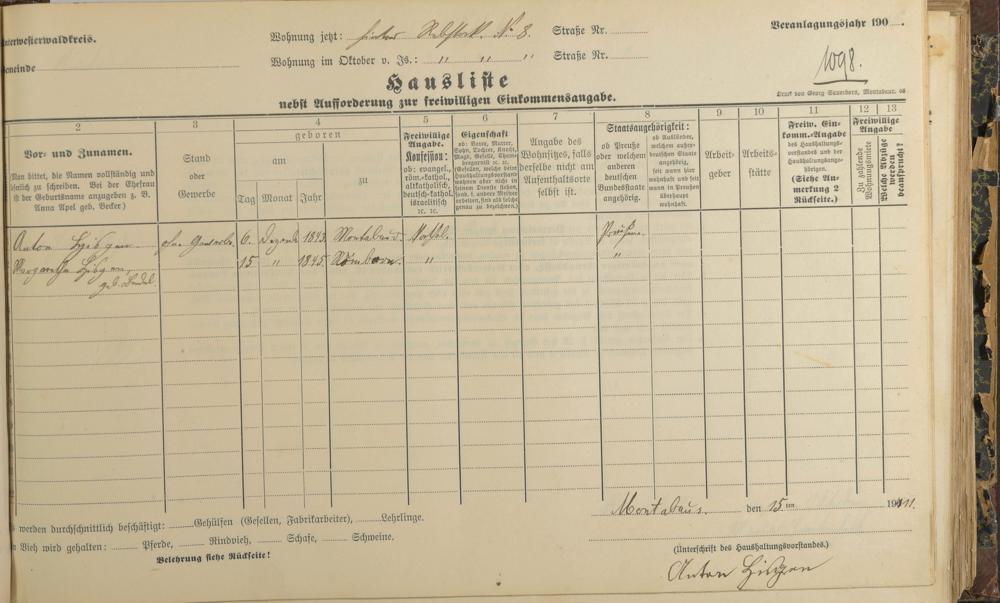 Unterwesterwaldkreis.
Gemeinde
Wohnung jetzt: hinter Rebstock. No 8. Straße Nr.
Wohnung im Oktober v. Js.: " " " Straße Nr.
Veranlagungsjahr 190 .
1098.
Hausliste
nebst Aufforderung zur freiwilligen Einkommensangabe.
Druck von Georg Sauerborn, Montabaur.
2 3 4 5 6 7 8 9 10 11 12 13
Vor- und Zunamen.
Man bittet, die Namen vollständig und
deutlich zu schreiben. Bei der Ehefrau
ist der Geburtsname anzugeben z. B.
Anna Apel geb. Becker.)
Stand
oder
Gewerbe
geboren
am
Tag Monat Jahr
zu
Freiwillige
Angabe.
Konfession:
ob: evangel.,
röm.-kathol.,
altkatholisch,
deutsch-kathol.
israelitisch
ꝛc. ꝛc.
Eigenschaft
ob: Vater, Mutter,
Sohn, Tochter, Knecht,
Magd, Geselle, Cham-
bregarnist ꝛc. ꝛc.
(Gesellen, welche beim
Haushaltungsvorstand
wohnen aber nicht in
seinem Dienste stehen,
sond. f. andere Meister
arbeiten, sind als solche
genau zu bezeichnen.)
Angabe des
Wohnsitzes, falls
derselbe nicht am
Aufenthaltsorte
selbst ist.
Staatsangehörigkeit:
ob Preuße
oder welchem
anderen
deutschen
Bundesstaate
angehörig.
ob Ausländer,
welchem außer-
deutschen Staate
angehörig,
seit wann hier
wohnhaft und seit
wann in Preußen
überhaupt
wohnhaft.
Arbeit-
geber
Arbeits-
stätte
Freiw. Ein-
komm.-Angabe
des Haushaltungs-
vorstandes und der
Haushaltungsange-
hörigen.
(Siehe An-
merkung 2
Rückseite.)
Freiwillige
Angabe
Zu zahlende
Wohnungsmiete
Welche Abzüge
werden
beansprucht?
Anton ohne Gewerbe 6. Dezemb 1843 Montabaur. kathol. Preußen.
Margaretha 15 " 1845. " "
geb.
werden durchschnittlich beschäftigt: Gehülfen (Gesellen, Fabrikarbeiter), Lehrlinge.
Vieh wird gehalten: Pferde, Rindvieh, Schafe, Schweine.
Belehrung siehe Rückseite!
Montabaur. den 15 ten 1911.
(Unterschrift des Haushaltungsvorstandes.)
Anton